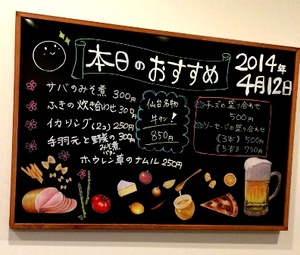 本日のおすすめ
2014年
4月12日
サバのみそ煮 300円
ふきの炊き合わせ 300円
イカリング(2コ) 250円
手羽元と野菜の
みそ煮 300円
ホウレン草のナムル 250円
仙台名物
牛タン!
850円
チーズの盛り合わせ
500円
ソーセージの盛り合わせ
(3本) 500円
(5本) 750円